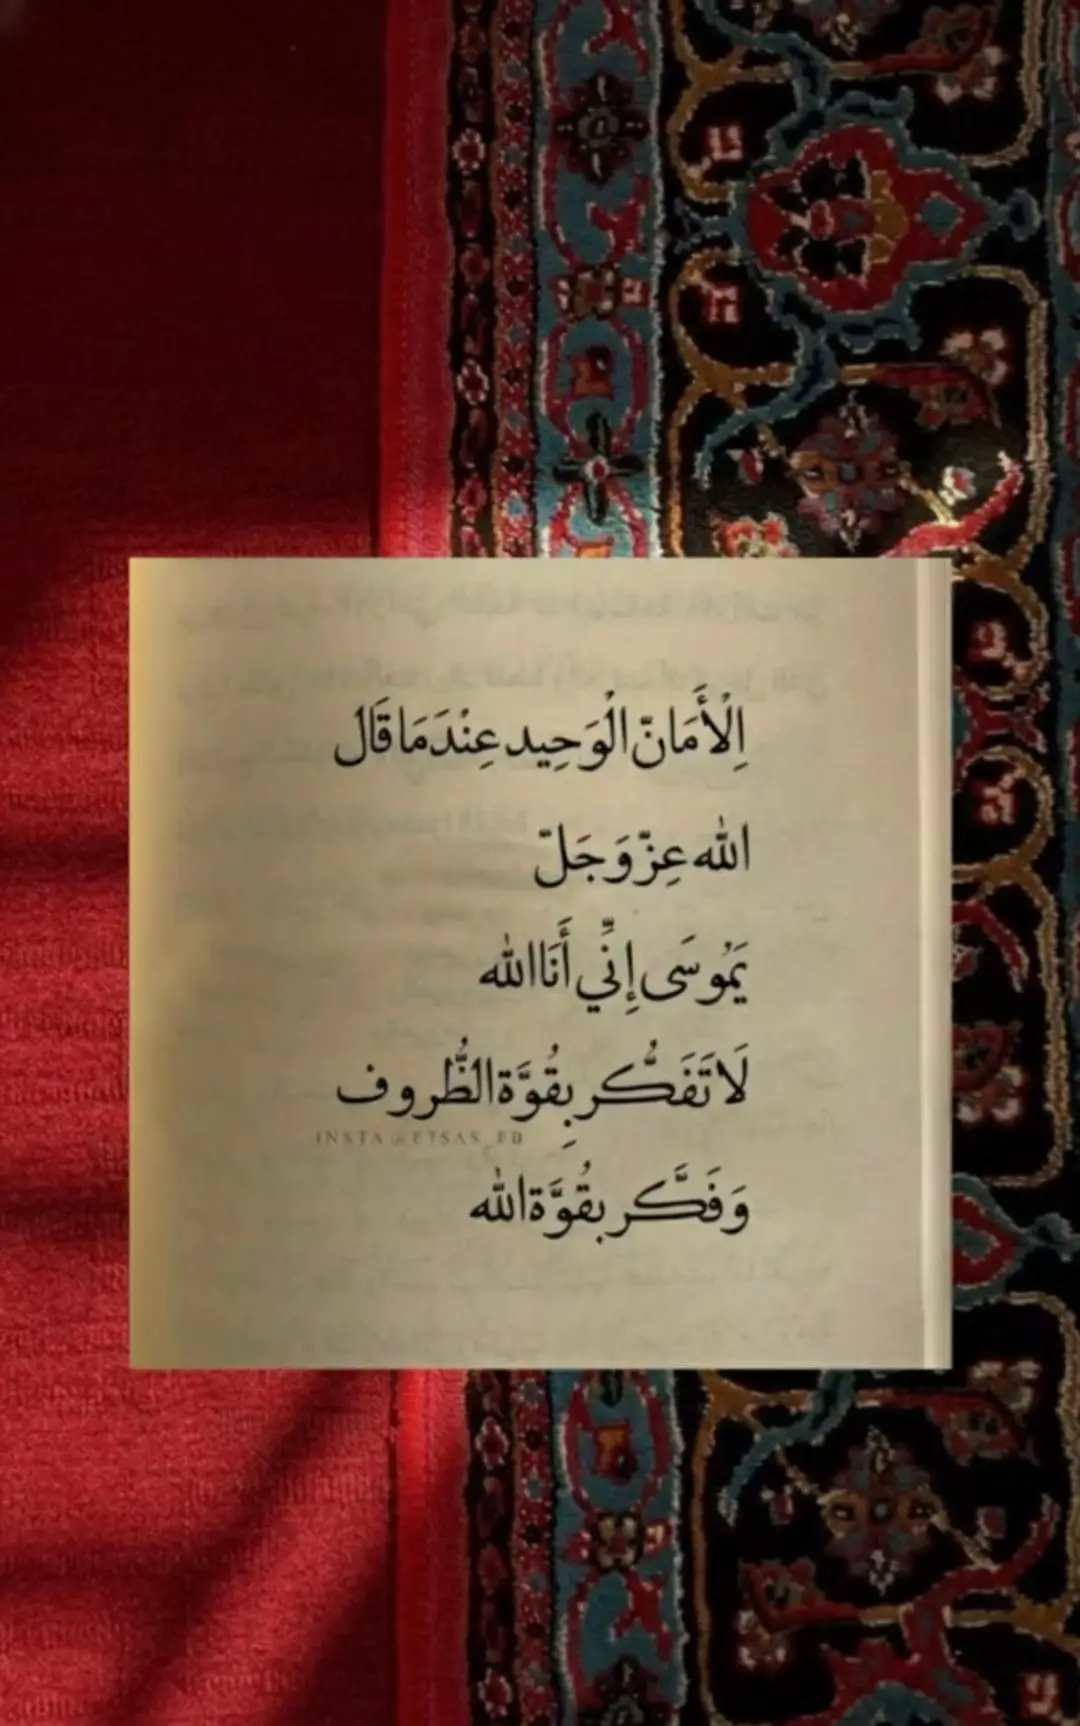 اِلْأَمَانّ الْوَحِيد عِنْدَمَا قَال
الله عِزّ وَجَلّ
يَمُوسَى إِنِّي أَنَا الله
لَا تَفَكُّر بِقُوَّة الظُّروف
INSTA @E7SAS_FD
وَفَكَّر بقُوَّة الله